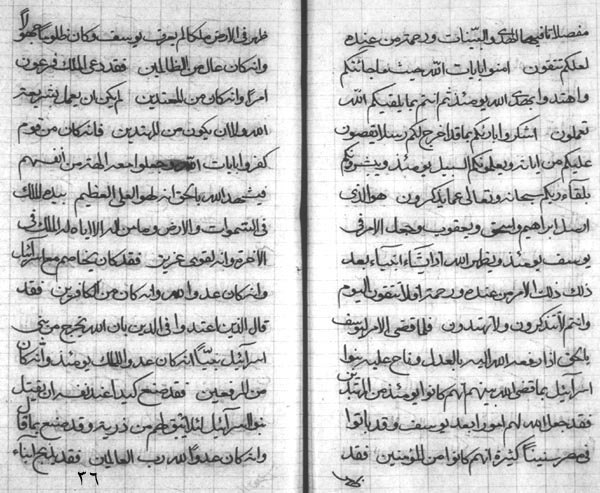 مفصلا تافيهما الهدى والبينات ورحمة من عنده
لعلكم تتقون امنوا بايات الله حيث ما جائتكم
واهتدوا بهدى الله يومئذ ثم انتم بما يلقيكم الله
تعملون اشكروا اباديكم بما قد اخرج لكم رسلا يقصون
عليكم من اياته ويعلمونكم السبيل يومئذ ويبشرونكم
بلقاء ربكم سبحانه وتعالى عما يذكرون هو الذي
ارسل ابراهيم واسحق ويعقوب وجعل الامر في
يوسف يومئذ ويظهر الله اذا يشاء انبياء بعد
ذلك ذلك الامر من عنده ورحمة اولا تتقون اليوم
وانتم لا تتذكرون ولا تهتدون فلما قضى الامر ليوسف
بالحق اذا رفعه الله اليه بالعدل وناح عليه بنوا
اسرائيل بما قضى الله بينهم انهم كانوا يومئذ من المهتدين
فقد جعل الله لهم امورا بعد يوسف وقد باتوا
في مصر سنينا كثيرة انهم كانوا من المؤمنين فقد
ظهر في الارض ملكا لم يعرف يوسف وكان ظلوما جهولا
وانه كان عال من الظالمين فقد دعى الملك فرعون
امرا وانه كان من المعتدين لم يكن ان يعمل بشيء بعز
الله ولا ان يكون من المهتدين فانه كان من قوم
كفروا بايات الله جعلوا معه الهة من انفسهم
فيشهد الله بالحق انه لهو العلي العظيم بيده الملك
في السموات والارض وما من اله الا اياه له الملك في
الآخرة وانه لقوي عزيز فقد كان يخاصم مع اسرائيل
وانه كان عدو الله وانه كان من الكافرين فقد
قال الذين اعتدوا في الدين بان الله يخرج من بني
اسرائيل نبيا انه كان عدو الملك يومئذ وانه كان
من الرفعين فقد صنع كيدا عند نفسه ان يقتل
بنو اسرائيل لئلا يبق لهم من ذرية وقد صنع بما قال
وانه كان عدوا لله رب العالمين فقد يذبح ابناء
٢٦